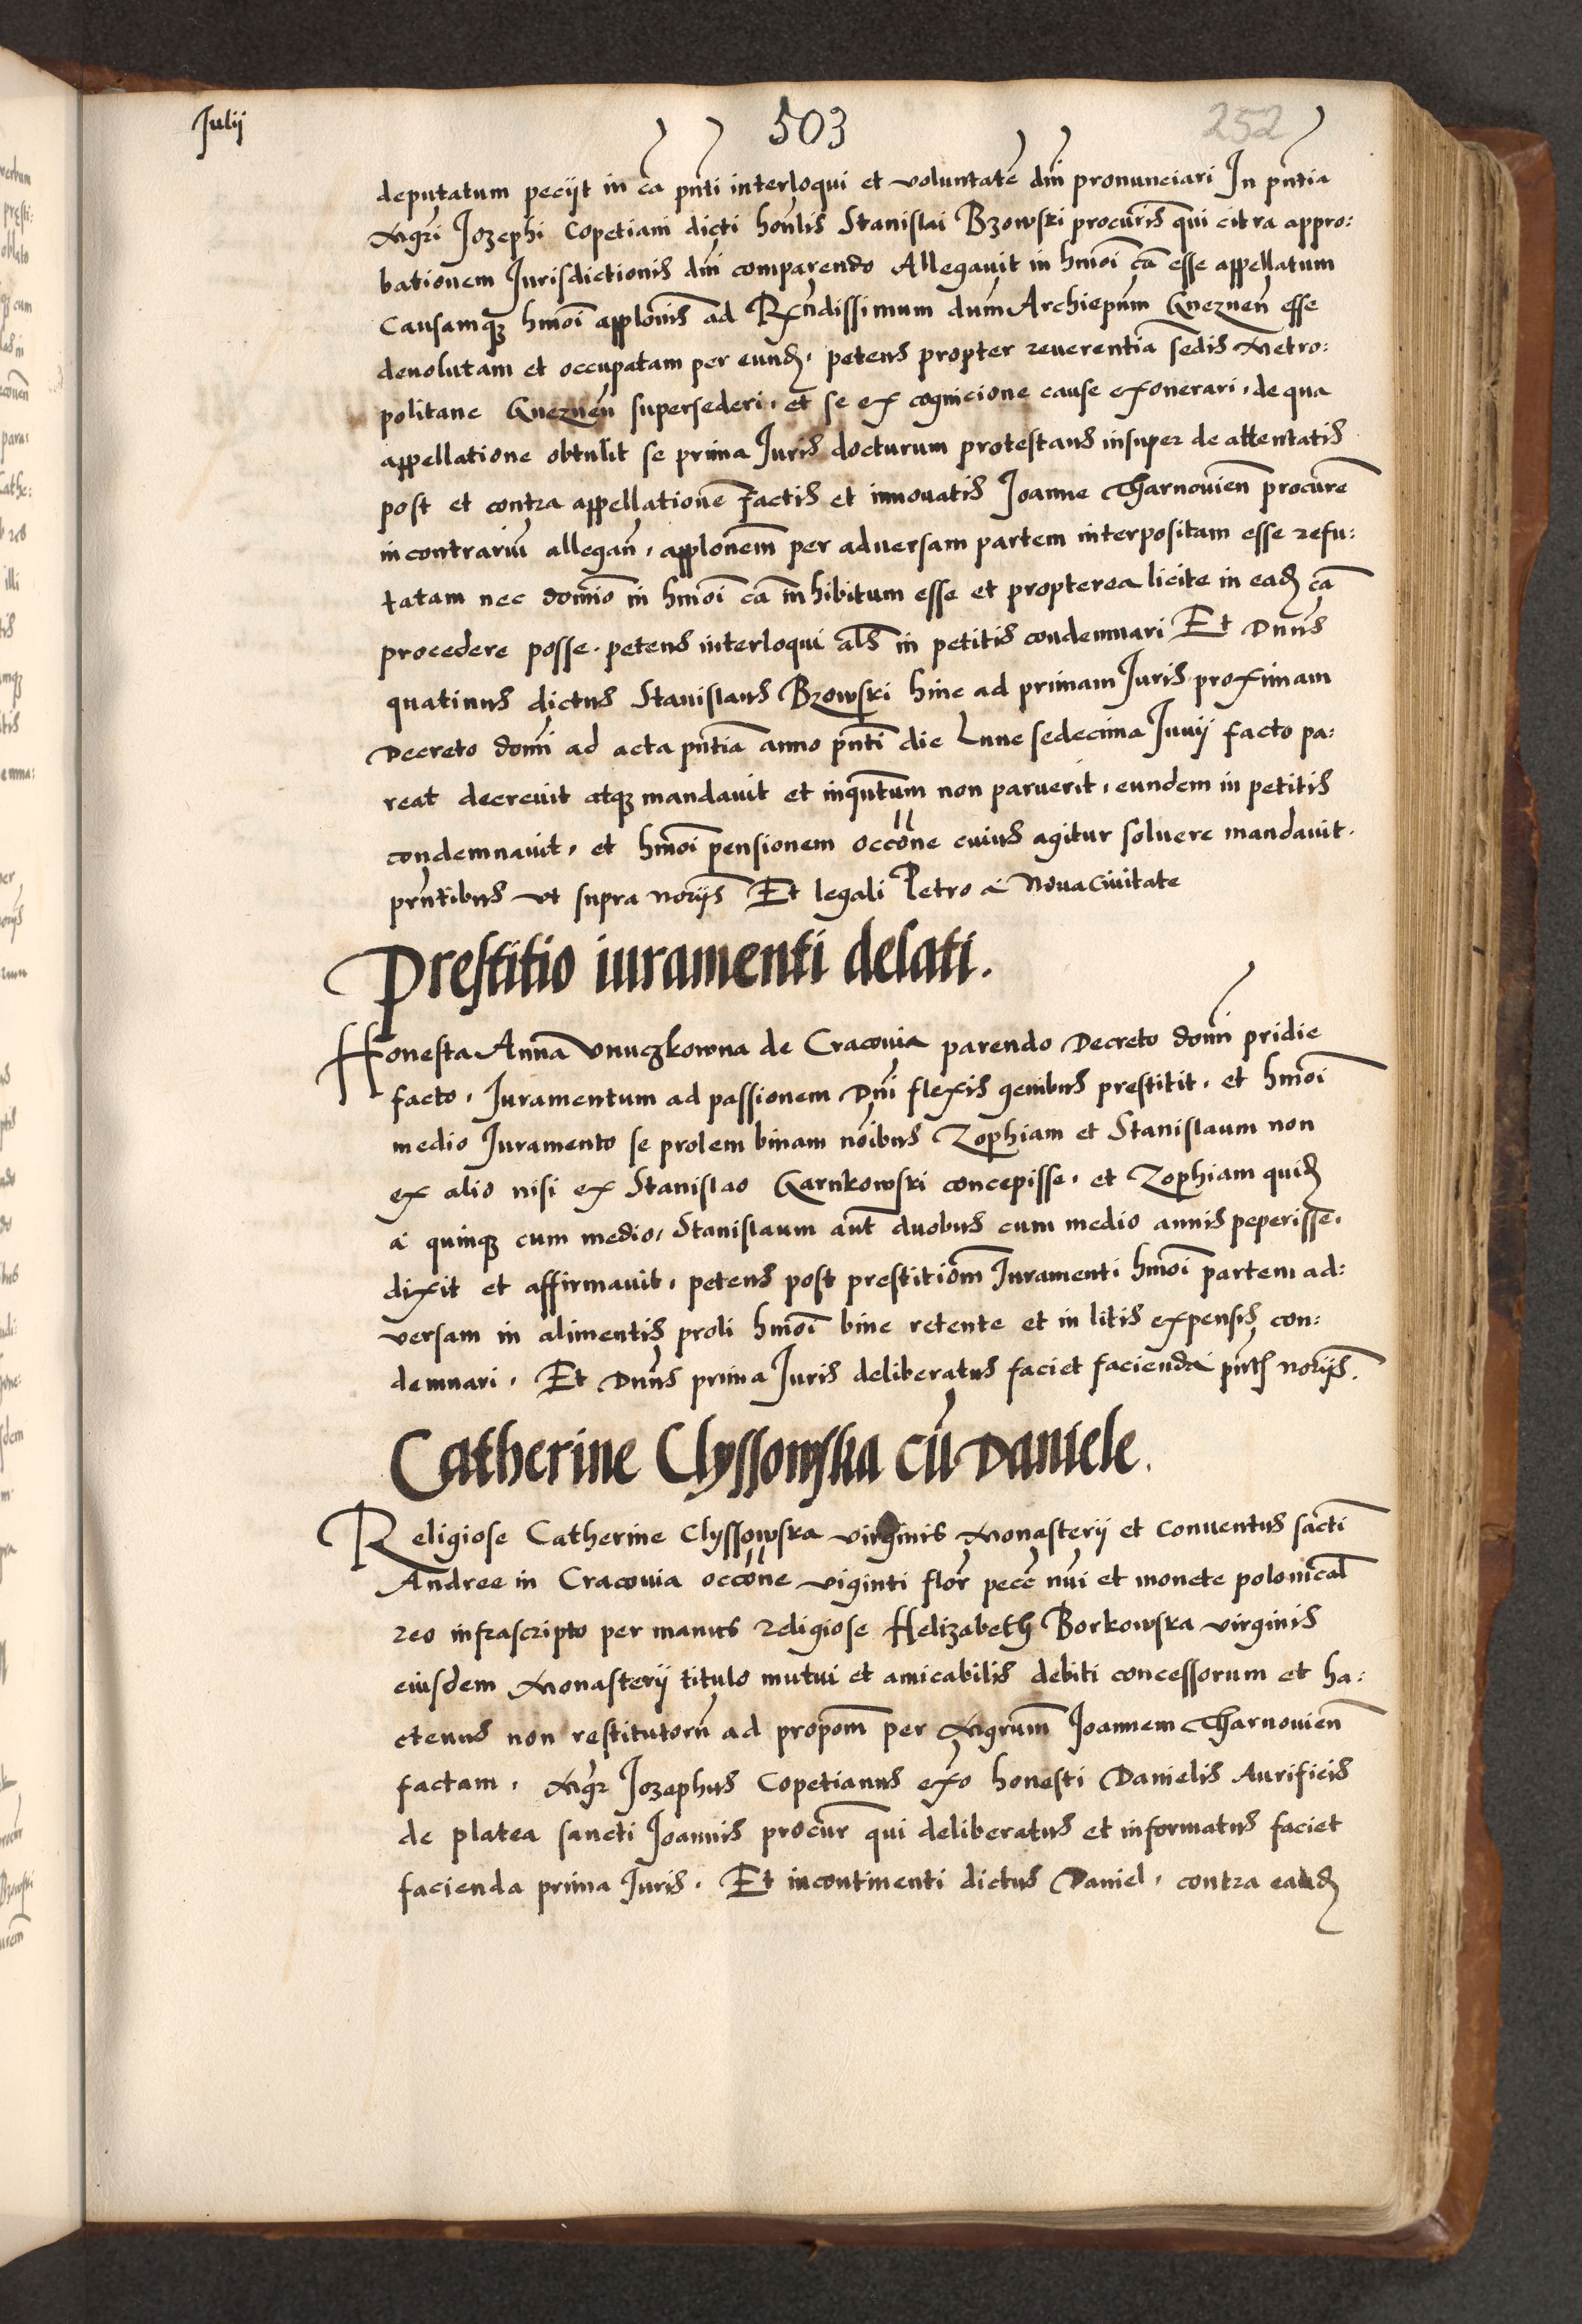 Julij
503
252
deputatum pecijt in ca pnti interloqui et voluntate dni pronunciari In pntia
Mgri Jozephi Copetiani dicti honlis Stanislai Bzowski procuris qui citra appro:
bationem Jurisdictionis dni comparendo Allegauit in hmoi ca esse appellatum
Causamq hmoi applonis ad Rndissimum dum Archiepum Gneznen esse
deuolutam et occupatam per eund, petens propter reuerentia sedis Metro:
politane Gneznen supersederi, et se ex cognicione cause exonerari, de qua
appellatione obtulit se prima Juris docturum protestans insuper de attentatis
post et contra appellatione factis et innouatis Joanne Tharnouien procure
in contrariu allegan, applonem per aduersam partem interpositam esse refu:
tatam nec domio in hmoi ca inhibitum esse et propterea licite in ead ca
procedere posse. petens interloqui als in petitis condemnari Et Dnus
quatinus dictus Stanislaus Bzowski hinc ad primam Juris proximam
Decreto domi ad acta pntia anno pnti die Lune sedecima Junij facto pa:
reat decreuit atq mandauit et inquntum non paruerit, eundem in petitis
condemnauit, et hmoi pensionem occone cuius agitur soluere mandauit.
prntibus vt supra norijs Et legali Petro a Noua Ciuitate
Prestitio iuramenti delati.
Honesta Anna Vnuczkowna de Cracouia parendo Decreto domi pridie
facto, Juramentum ad passionem Dni flexis genibus prestitit, et hmoi
medio Juramento se prolem binam noibus Zophiam et Stanislaum non
ex alio nisi ex Stanislao Garnkowski concepisse, et Zophiam quid
a quinq cum medio, Stanislaum aut duobus cum medio annis peperisse,
dixit et affirmauit, petens post prestitiom Juramenti hmoi partem ad:
uersam in alimentis proli hmoi bine retente et in litis expensis con:
demnari, Et Dnus prima Juris deliberatus faciet facienda pntb norijs.
Catherine Clyssowska cu Daniele.
Religiose Catherine Clyssowska virginis Monasterij et Conuentus sacti
Andree in Cracouia occone viginti flor pecc nui et monete polonical
reo infrascripto per manus religiose Helizabeth Borkowska virginis
eiusdem Monasterij titulo mutui et amicabilis debiti concessorum et ha:
ctenus non restitutoru ad propom per Mgrum Joannem Tharnouien
factam, Mgr Jozephus Copetianus exo honesti Danielis Aurificis
de platea sancti Joannis procur qui deliberatus et informatus faciet
facienda prima Juris. Et incontinenti dictus Daniel, contra eand